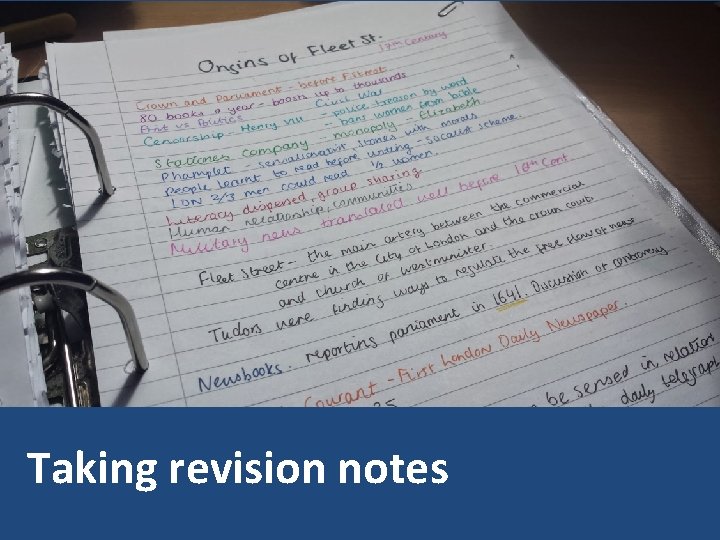 Origins of Fleet St.
17th Century
Crown and Parliament - before F. Street
80 books a year - boosts up to thousands
Print vs Politics Civil War
Censorship - Henry VIII - police treason by word
- bans women from bible
Stationers company - monopoly - Elizabeth
Phamplet - sensationalist stories with morals
People learnt to read before writing - Socialist scheme.
LDN 2/3 men could read 1/2 women.
Literacy dispersed, group sharing
Human relationship, communities
Military news translated well before 18th Cent
Fleet Street - the main artery between the commercial
centre in the City of London and the crown court
and church of westminister.
Tudors were finding ways to regulate the free flow of news
Newsbooks. reporting parliament in 1641. Discussion of controversy
Courant - First London Daily Newspaper.
be sensed in relation
daily telegraph
Taking revision notes